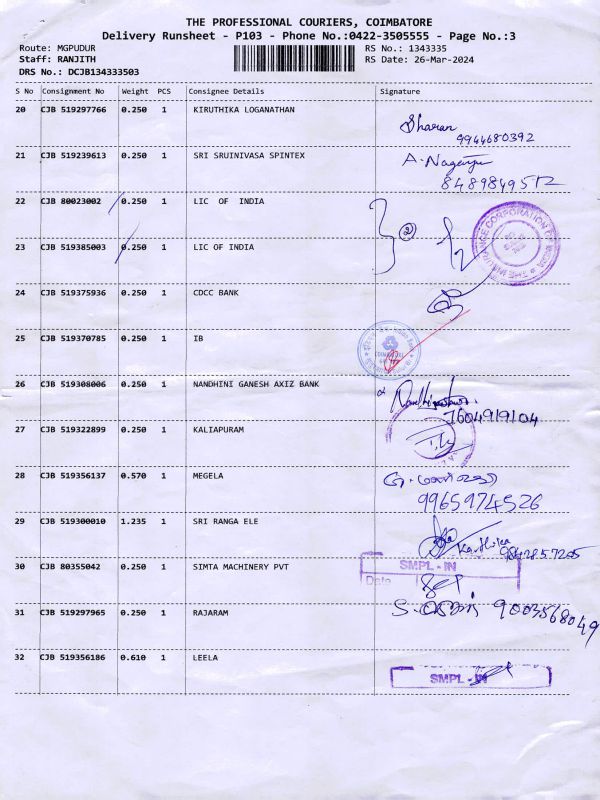 THE PROFESSIONAL COURIERS, COIMBATORE
Delivery Runsheet - P103 - Phone No.:0422-3505555 - Page No.:3
Route: MGPUDUR RS No.: 1343335
Staff: RANJITH RS Date: 26-Mar-2024
DRS No.: DCJB134333503
S No Consignment No Weight PCS Consignee Details Signature
20 CJB 519297766 0.250 1 KIRUTHIKA LOGANATHAN
Sharan
9944680392
21 CJB 519239613 0.250 1 SRI SRUINIVASA SPINTEX
8489849512
22 CJB 80023002 0.250 1 LIC OF INDIA
2
23 CJB 519385003 0.250 1 LIC OF INDIA
24 CJB 519375936 0.250 1 CDCC BANK
25 CJB 519370785 0.250 1 IB
26 CJB 519308006 0.250 1 NANDHINI GANESH AXIZ BANK
7604919104
27 CJB 519322899 0.250 1 KALIAPURAM
28 CJB 519356137 0.570 1 MEGELA
9965974526
29 CJB 519300010 1.235 1 SRI RANGA ELE
Karthika 9842857205
30 CJB 80355042 0.250 1 SIMTA MACHINERY PVT
SMPL - IN
Date
31 CJB 519297965 0.250 1 RAJARAM
9003568049
32 CJB 519356186 0.610 1 LEELA
SMPL - IN